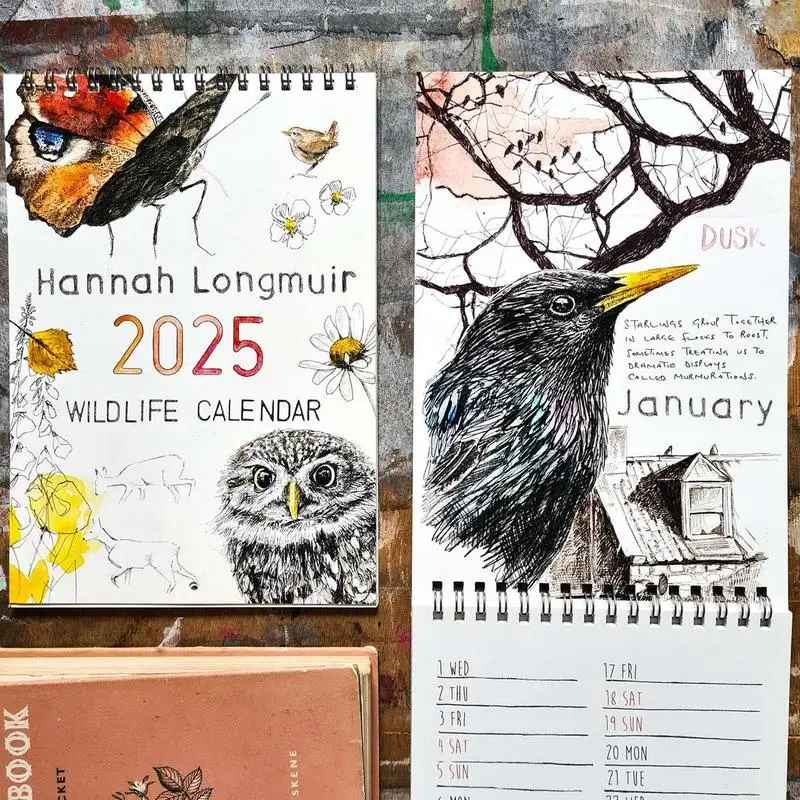 Hannah Longmuir
2025
WILDLIFE CALENDAR
DUSK
STARLINGS GROUP TOGETHER
IN LARGE FLOCKS TO ROOST,
SOMETIMES TREATING US TO
DRAMATIC DISPLAYS
CALLED MURMURATIONS.
January
1 WED
2 THU
3 FRI
4 SAT
5 SUN
6 MON
17 FRI
18 SAT
19 SUN
20 MON
21 TUE
22 WED
BOOK
CKET
SKENE